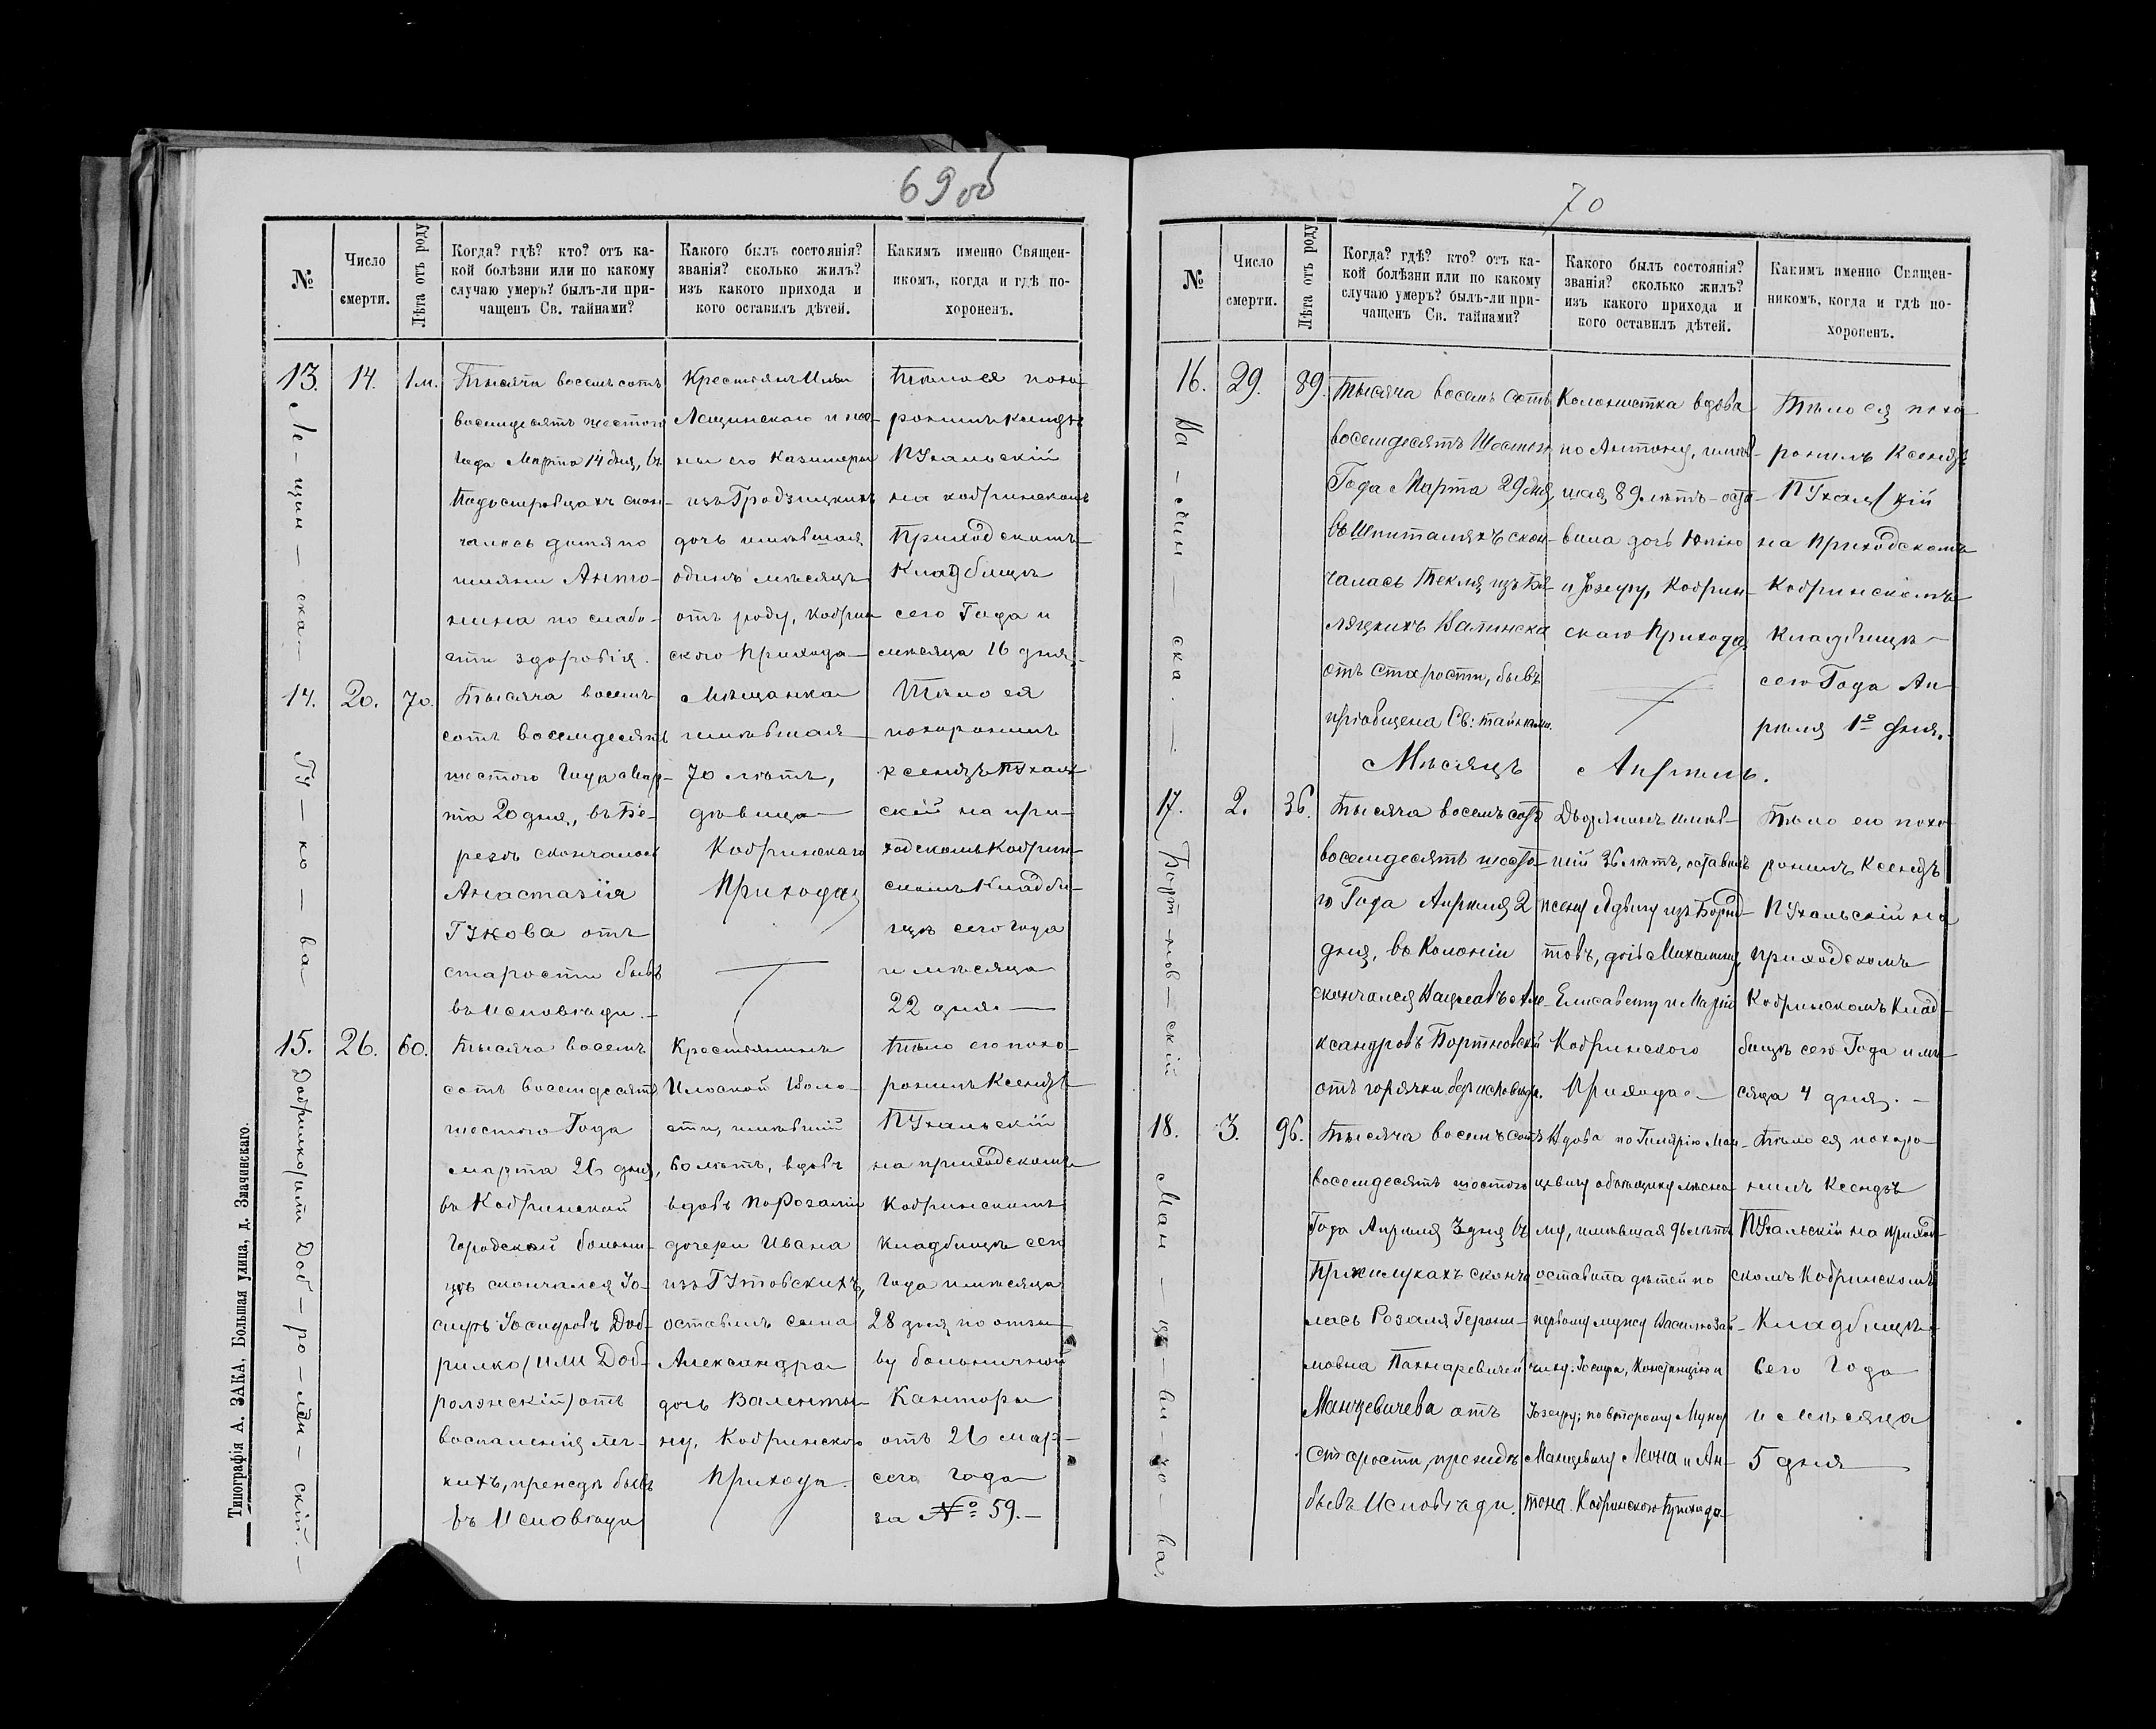 69 об
№
Число смерти.
Лѣта отъ роду
Когда? гдѣ? кто? отъ ка-
кой болѣзни или по какому
случаю умеръ? былъ-ли при-
чащенъ Св. тайнами?
Какого былъ состоянія?
званія? сколько жилъ?
изъ какого прихода и
кого оставилъ дѣтей.
Какимъ именно Священ-
никомъ, когда и гдѣ по-
хороненъ.
13.
14.
1 м.
Ле-щин-ска-
Тысяча восемьсотъ
восемьдесятъ шестого
Года Марта 14 дня, въ
скон-
чалось дитя по
имяни Анто-
нина по слабо-
сти здоровія.
Крестьянъ Ильи
Лещинскаго и же-
ны его Казимеры
изъ Гродзицкихъ
дочь имѣвшая
одинъ мѣсяцъ
отъ роду, Кобрин-
ского Прихода
Тѣло ея похо-
ронилъ Ксендзъ
Пухальскій
на кобринскомъ
Приходскомъ
Кладбищѣ
сего Года и
мѣсяца 16 дня.
14.
20.
70.
Гу-ко-ва
Тысяча восемь
сотъ восемдесятъ
шестого Года Мар-
та 20 дня, въ Бе-
резѣ скончалась
Анастазія
Гукова отъ
старости бывъ
въ Исповѣди.
Мѣщанка
имѣвшая
70 лѣтъ,
дѣвица
Кобринскаго
Прихода
Тѣло ея
похоронилъ
ксендзъ Пухаль-
скій на при-
ходскомъ Кобрин-
скомъ Кладби-
щѣ сего Года
и мѣсяца
22 дня.
15.
26.
60.
Добрилко/или Доб-ро-лэн-скій.
Тысяча восемь
сотъ восемдесятъ
шестого Года
марта 26 дня,
въ Кобринской
Городской больни-
цѣ скончался Іо-
сифъ Іосифовъ Доб-
рилко/или Доб-
ролэнскій/отъ
воспаленія лег-
кихъ, прежде бывъ
въ Исповѣди
Крестьянинъ
Илоской Воло-
сти, имѣвшій
60 лѣтъ, вдовъ
вдовъ по Розаліи
дочери Ивана
изъ Гутовскихъ,
оставилъ сына
Александра
дочь Валенты-
ну, Кобринского
Прихода.
Тѣло его похо-
ронилъ Ксендзъ
Пухальскій
на приходскомъ
Кобринскомъ
Кладбищѣ сего
Года и мѣсяца
28 дня по отзы-
ву больничной
Канторы
отъ 26 мар-
сего Года
за № 59.
Типографія А. ЗАКА, Большая улица, д. Значинскаго.
70
№
Число смерти.
Лѣта отъ роду
Когда? гдѣ? кто? отъ ка-
кой болѣзни или по какому
случаю умеръ? былъ-ли при-
чащенъ Св. тайнами?
Какого былъ состоянія?
званія? сколько жилъ?
изъ какого прихода и
кого оставилъ дѣтей.
Какимъ именно Священ-
никомъ, когда и гдѣ по-
хороненъ.
16.
29.
89.
Тысяча восемь сотъ
восемдесятъ
Года Марта 29 дня,
въ Шпиталяхъ скон-
чалась Текля изъ Бѣ-
ляцкихъ
отъ старости, бывъ
пріобщена Св: тайнами.
Колонистка вдова
по Антону, имѣв-
шая 89 лѣтъ - оста-
вила дочь
и Іозефу, Кобрин-
скаго Прихода
Тѣло ея похо-
ронилъ Ксендзъ
Пухальскій
на Приходскомъ
Кобринскомъ
Кладбищѣ
сего Года Ап-
рѣля 1º дня.
Мѣсяцъ Апрѣль.
17.
2.
36.
Борт-нов-скій
Тысяча восемьсотъ
восемдесятъ шесто-
го Года Апрѣля 2
дня, въ Колоніи
скончался Вацлавъ Але-
ксандровъ Бортновскій
отъ горячки безъ исповѣди.
Дворянинъ имѣв-
шій 36 лѣтъ, оставилъ
жену Ядвигу изъ
дочь Михалину,
Елисавету и
Кобринского
Прихода
Тѣло его похо-
ронилъ Ксендзъ
Пухальскій на
приходскомъ
Кобринскомъ Клад-
бищѣ сего Года и мѣ-
сяца 4 дня.
18.
3.
96.
Ман-це-ви-чо-ва.
Тысяча восемьсотъ
восемдесятъ шостого
Года Апрѣля 3 дня въ
Пржилукахъ сконча-
лась Розаля Герони-
мовна
Манцевичева отъ
Старости, прежде
бывъ Исповѣди.
Вдова по Гилярію Ман-
цевичу
имѣвшая 96 лѣтъ
оставила дѣтей по
первому мужу Василію
Іосифа, Констанцію и
Іозефу; по второму Мужу
Манцевичу Леона и Ан-
тона. Кобринского Прихода
Тѣло ея похоро-
нилъ Ксендзъ
Пухальскій на приход-
скомъ Кобринскомъ
Кладбищѣ
Сего Года
и Мѣсяца
5 дня